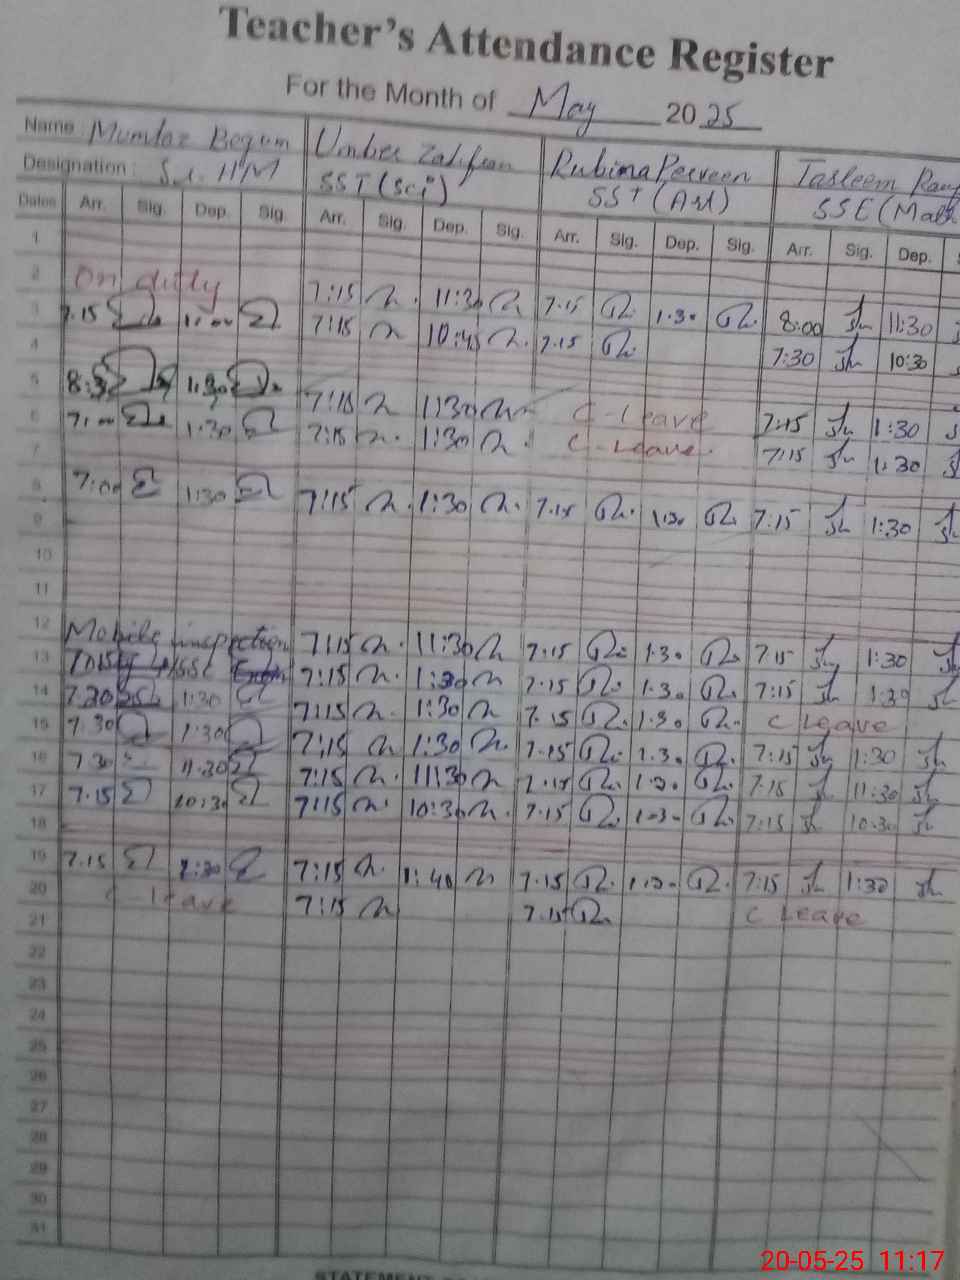 Teacher's Attendance Register
For the Month of May 2025
Name Mumtaz Begum Umber Zulifqan Rubina Perveen Tasleem
Designation: HM SST (Sci) SST (Art) SSE (Math
Dates Arr. Sig. Dep. Sig. Arr. Sig. Dep. Sig. Arr. Sig. Dep. Sig. Arr. Sig. Dep.
1
2 On duty 7:15 11:30 7.15 1.30 8:00 11:30
3 7.15 11:00 7:15 10:45 7.15 7:30 10:30
4
5 8:30 1:30 7:15 1:30 C-Leave 7:15 1:30
6 7:00 1:30 7:15 1:30 C-Leave 7:15 1:30
7
8 7:00 1:30 7:15 1:30 7.15 1.30 7:15 1:30
9
10
11
12 Mobile inspection 7:15 11:30 7.15 1.30 7:15 1:30
13 7:15 1:30 7.15 1.30 7:15 1:30
14 7.30 1:30 7:15 1:30 7.15 1.30 C Leave
15 7.30 1:30 7:15 1:30 7.15 1.30 7:15 1:30
16 7.30 11.30 7:15 11:30 7.15 1.30 7:15 11:30
17 7.15 10:30 7:15 10:30 7.15 1.30 7:15 10:30
18
19 7.15 1:30 7:15 1:40 7.15 1.30 7:15 1:30
20 C leave 7:15 7.15 C Leave
21
22
23
24
25
26
27
28
29
30
31
20-05-25 11:17